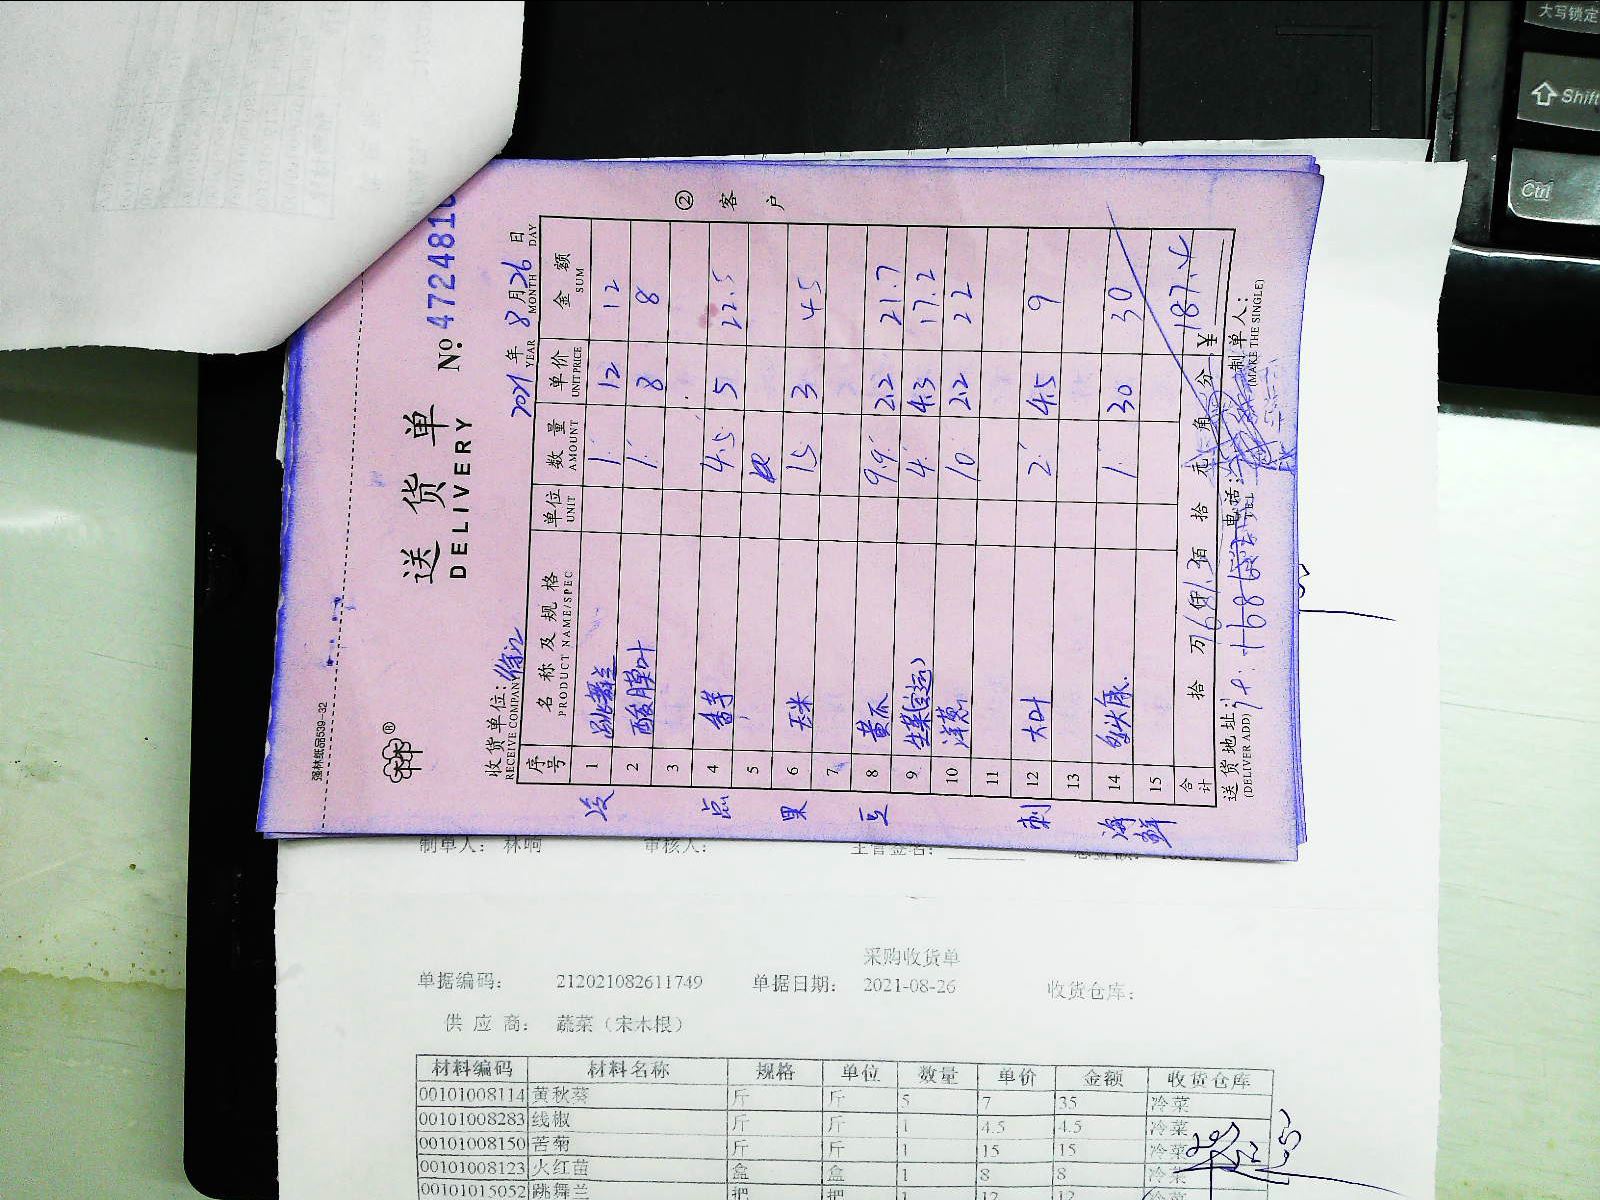 强林纸品539-32
送货单
DELIVERY
№ 4724810
收货单位: 徐汇
RECEIVE COMPANY
2021年 8月 26日
YEAR MONTH DAY
② 客户
序号 名称及规格 单位 数量 单价 金额
PRODUCT NAME/SPEC UNIT AMOUNT UNIT PRICE SUM
冷 1 跳舞兰 1 12 12
2 酸膜叶 1 8 8
3
点 4 香芋 4.5 5 22.5
5
果 6 玉米 15 3 45
7
豆 8 黄瓜 9.9 2.2 21.7
9 生菜(空运) 4 4.3 17.2
10 洋葱 10 2.2 22
11
刺 12 大叶 2 4.5 9
13
海鲜 14 30 30
15
合计 拾 万 仟 佰 拾 元 角 分 ¥ 187.4
送货地址: 电话: 制单人:
(DELIVER ADD) TEL (MAKE THE SINGLE)
制单人: 林响 审核人: 主管签名:
采购收货单
单据编码: 212021082611749 单据日期: 2021-08-26 收货仓库:
供应商: 蔬菜（宋木根）
材料编码 材料名称 规格 单位 数量 单价 金额 收货仓库
00101008114 黄秋葵 斤 斤 5 7 35 冷菜
00101008283 线椒 斤 斤 1 4.5 4.5 冷菜
00101008150 苦菊 斤 斤 1 15 15 冷菜
00101008123 火红苗 盒 盒 1 8 8 冷菜
00101015052 跳舞兰 把 把 1 12 12 冷菜
大写锁定
Shift
Ctrl